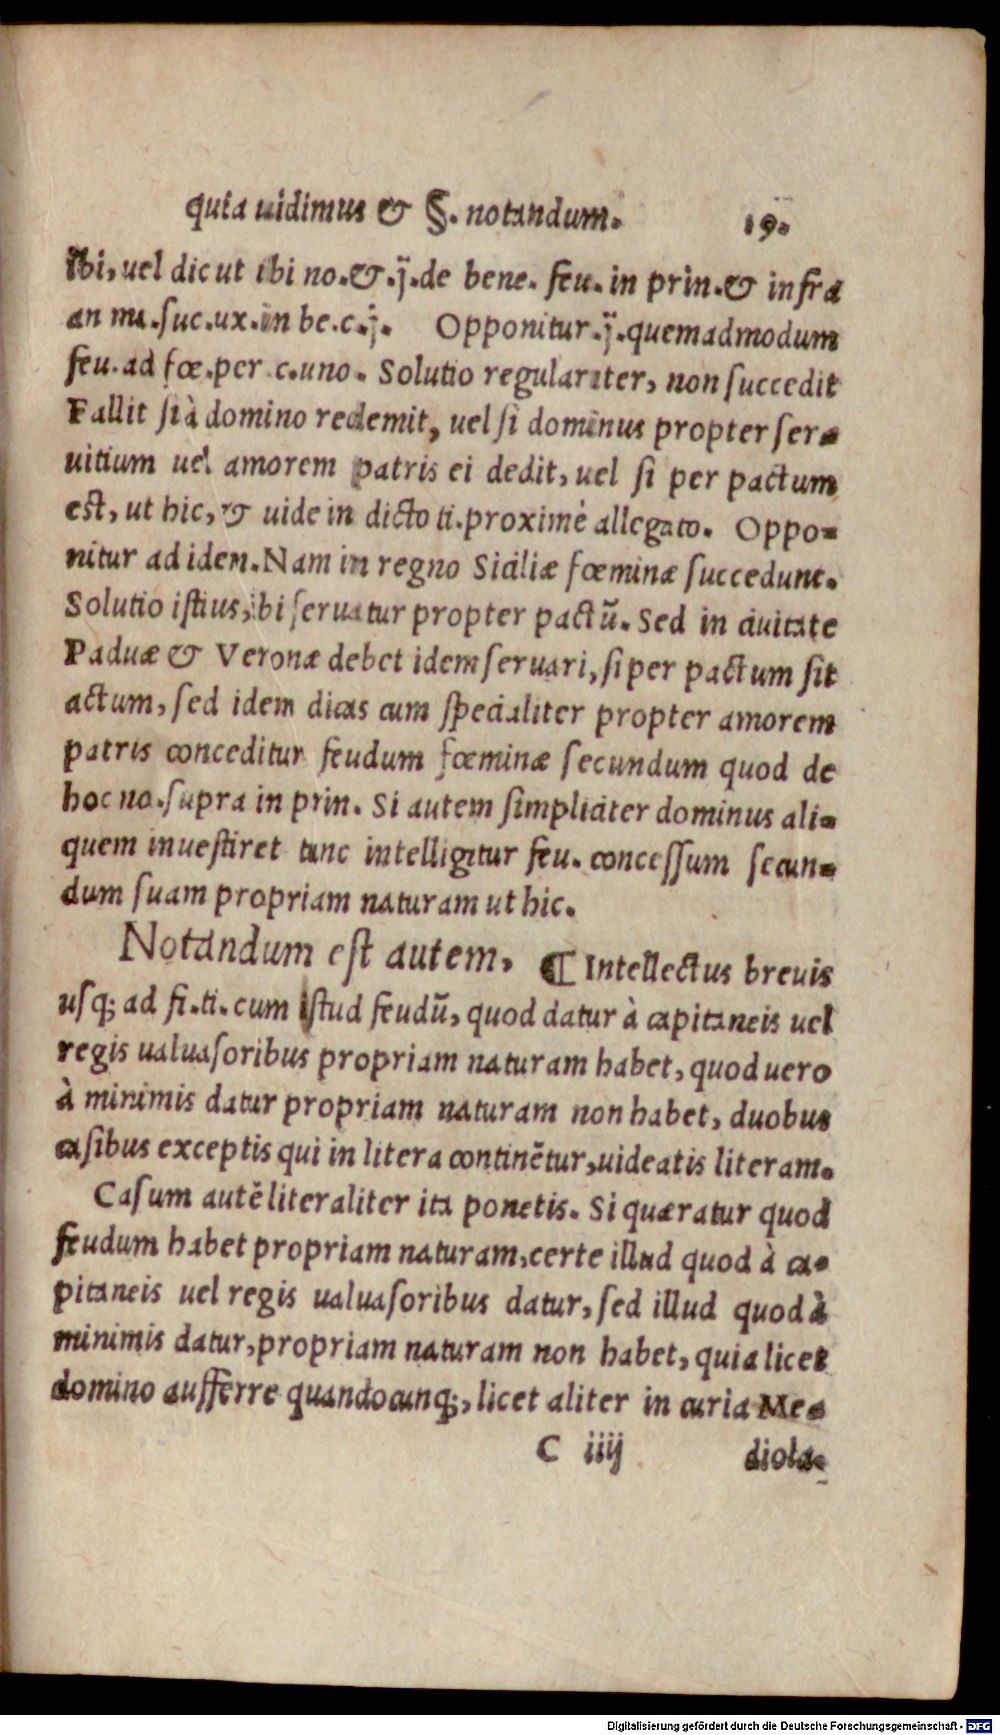 quia uidimus & §. notandum. 19.
ibi, uel dic ut ibi no.&.ij.de bene. feu. in prin.& infra
an ma.suc.ux.in be.c.j. Opponitur.ij.quemadmodum
feu. ad fœ.per c.uno. Solutio regulariter, non succedit
Fallit si à domino redemit, uel si dominus propter ser-
uitium uel amorem patris ei dedit, uel si per pactum
est, ut hic, & uide in dicto ti.proximè allegato. Oppo-
nitur ad idem.Nam in regno Siciliæ fœminæ succedunt.
Solutio istius, ibi seruatur propter pactũ. Sed in ciuitate
Paduæ & Veronæ debet idem seruari, si per pactum sit
actum, sed idem dicas cum specialiter propter amorem
patris conceditur feudum fœminæ secundum quod de
hoc no.supra in prin. Si autem simpliciter dominus ali-
quem inuestiret tunc intelligitur feu. concessum secun-
dum suam propriam naturam ut hic.
Notandum est autem, ¶ Intellectus breuis
usq; ad fi.ti. cum istud feudũ, quod datur à capitaneis uel
regis ualuasoribus propriam naturam habet, quod uero
à minimis datur propriam naturam non habet, duobus
casibus exceptis qui in litera continẽtur, uideatis literam.
Casum autẽ literaliter ita ponetis. Si quæratur quod
feudum habet propriam naturam, certe illud quod à ca-
pitaneis uel regis ualuasoribus datur, sed illud quod à
minimis datur, propriam naturam non habet, quia licet
domino aufferre quandocunq;, licet aliter in curia Me-
C iiij diola-
Digitalisierung gefördert durch die Deutsche Forschungsgemeinschaft - DFG